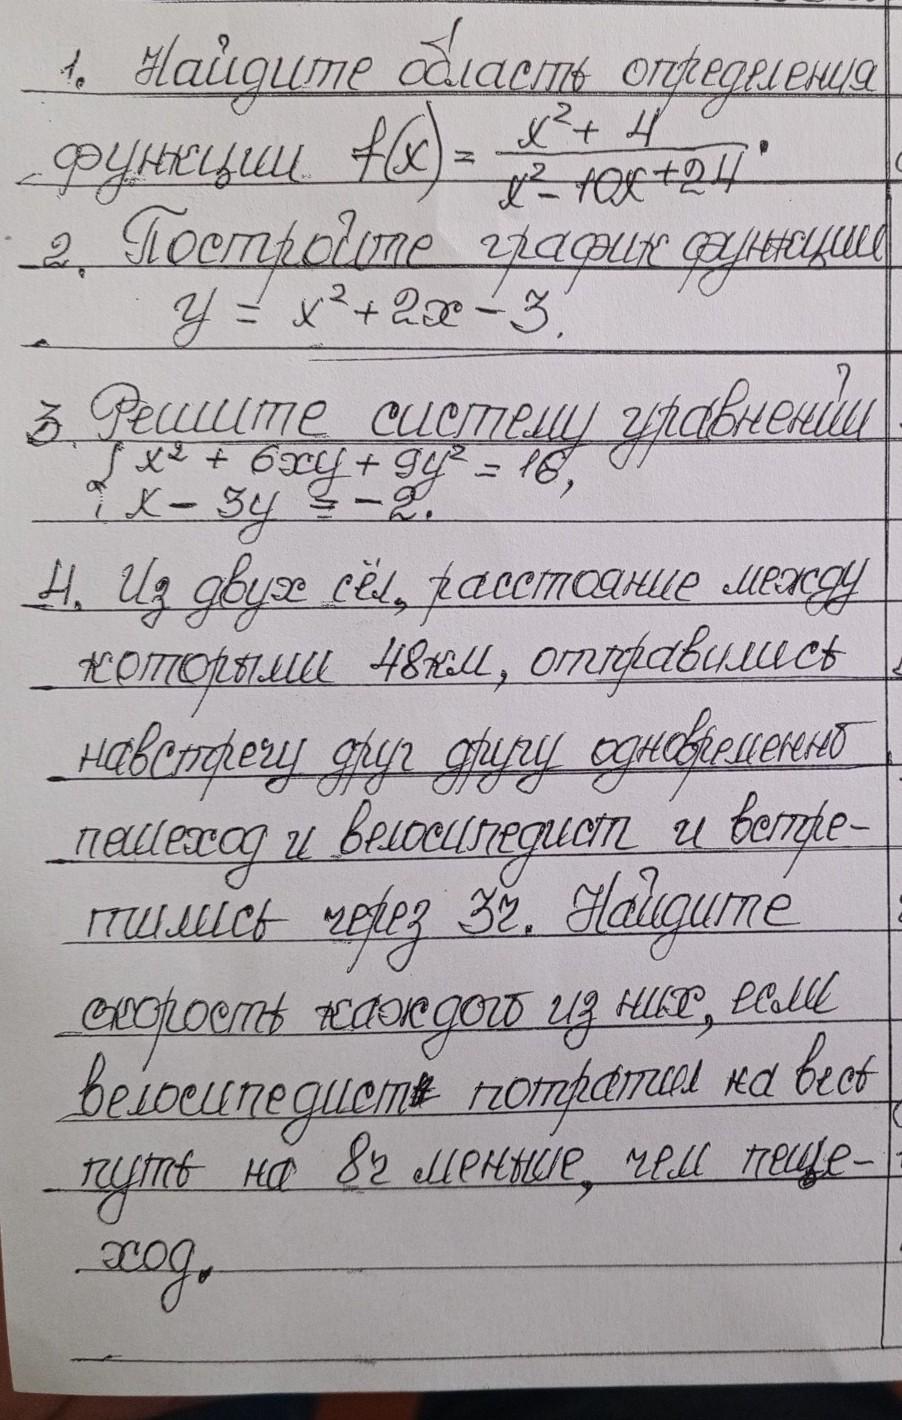 1. Найдите область определения
функции f(x) = (x² + 4)/(x² - 10x + 24).
2. Постройте график функции
y = x² + 2x - 3.
3. Решите систему уравнений
{ x² + 6xy + 9y² = 16,
x - 3y = -2.
4. Из двух сёл, расстояние между
которыми 48км, отправились
навстречу друг другу одновременно
пешеход и велосипедист и встре-
тились через 3ч. Найдите
скорость каждого из них, если
велосипедист потратил на весь
путь на 8ч меньше, чем пеше-
ход.